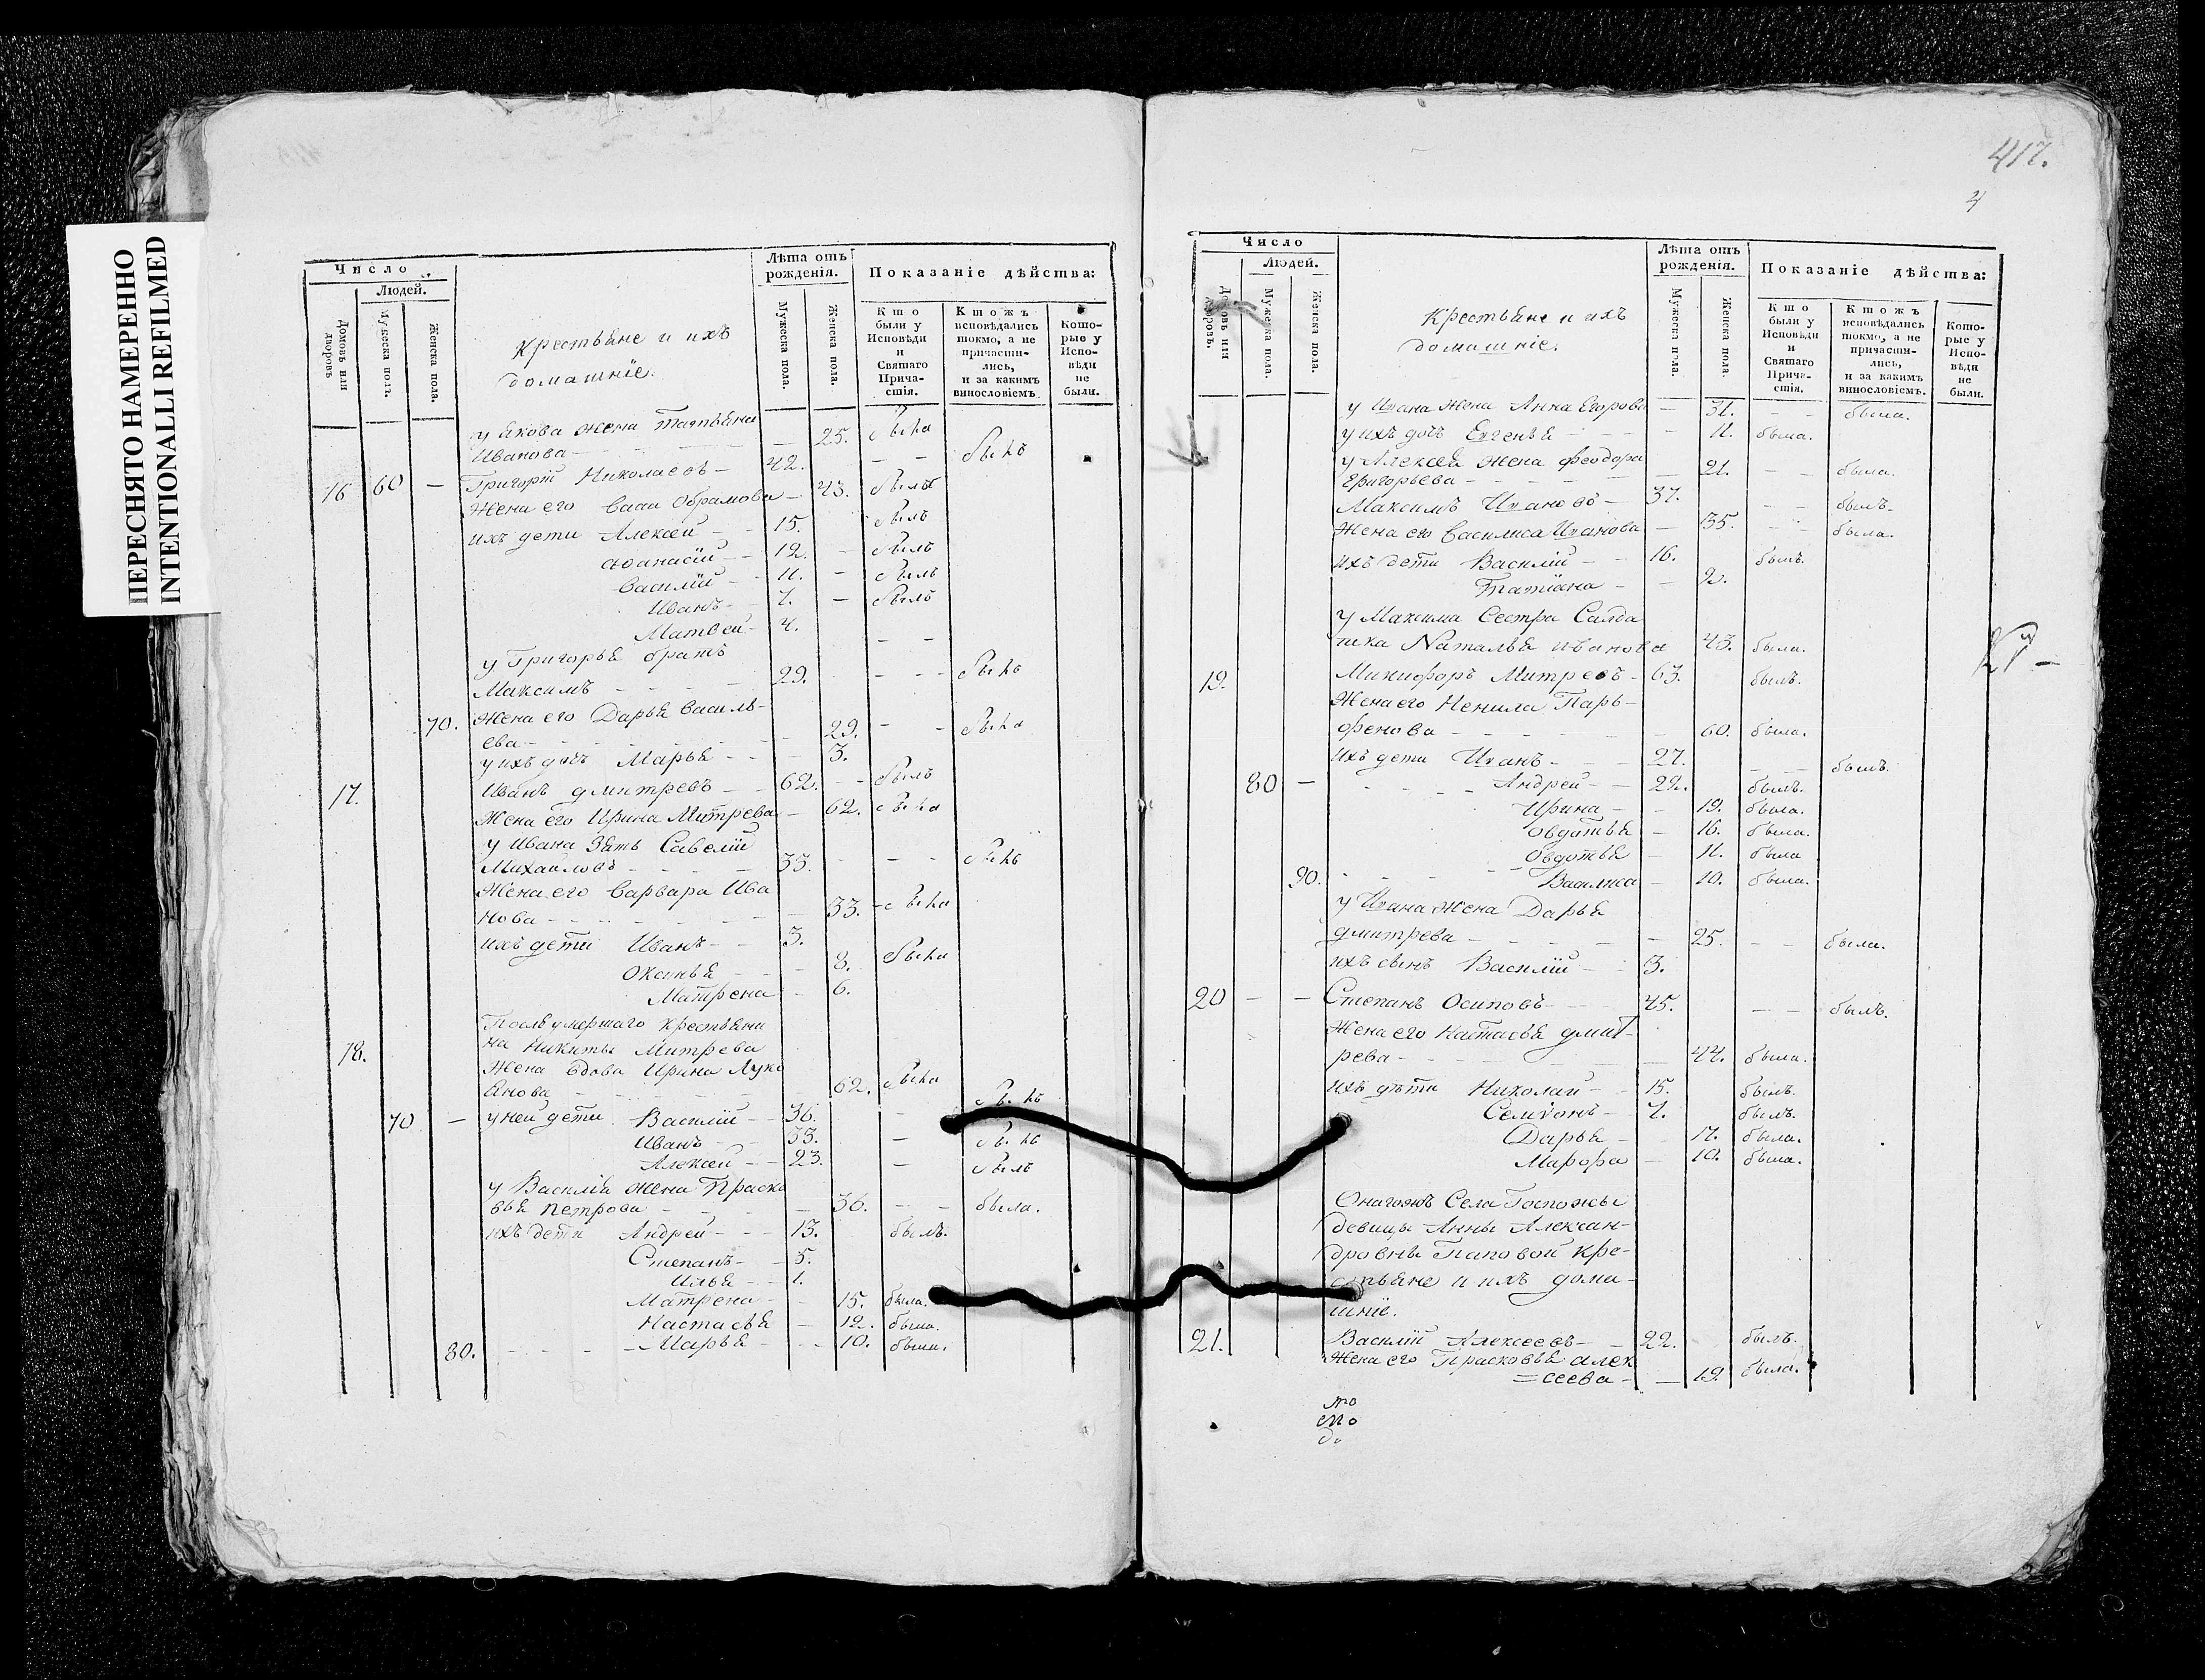 ПЕРЕСНЯТО НАМЕРЕННО
INTENTIONALLI REFILMED
Число
Людей.
Домовъ или дворовъ
Мужеска пола.
Женска пола.
Крестьяне и ихъ
домашніе.
Лѣта отъ
рожденія.
Мужеска пола.
Женска пола.
Показаніе дѣйства:
Кто
были у
Исповѣди
и
Святаго
Прича-
стія.
Ктожъ
исповѣдались
токмо, а не
причасти-
лись,
и за какимъ
винословіемъ.
Кото-
рые у
Испо-
вѣди
не
были.
у Якова жена Татьяна
Иванова - - 25. была
16 60 — Григорій Николаевъ - 42. - - былъ
Жена его Обрамова - 43.
ихъ дети Алексей - 15. былъ
Афанасій - 12. - былъ
Василій - 11. - былъ
Иванъ - 7. - былъ
Матвей - 4. - -
у Григорья братъ
Максимъ - - - 29. - - - былъ
70. Жена его Дарья Василь-
ева - - - 29. - - была
у ихъ дочь Марья - - - 3.
17. Иванъ дмитревъ - - 62. - - былъ
Жена его Ирина Митрева - 62. была
у Ивана Зять Савелій
Михаиловъ - - - 33. - - - былъ
Жена его Варвара Ива
нова - - - 33. - была
ихъ дети Иванъ - - 3.
Оксинья - - - 8. была
Матрена - 6.
После умершаго крестьяни
на Никиты Митрева
18. Жена вдова Ирина Лукі
янова - - - 62. была
70 — у ней дети Василій - 36. - былъ
Иванъ - - 33. - былъ
Алексей - - 23. - былъ
у Василія жена Праско
вья Петрова - - - 36. - - была.
ихъ дети Андрей - - - 13. былъ.
Степанъ - - 5.
Илья - - 1.
Матрена - - 15. была.
Настасья - 12. была.
80. - - - - Марья - - - 10. была.
417.
4
Число
Людей.
Домовъ или дворовъ.
Мужеска пола.
Женска пола.
Крестьяне и ихъ
домашніе.
Лѣта отъ
рожденія.
Мужеска пола.
Женска пола.
Показаніе дѣйства:
Кто
были у
Исповѣди
и
Святаго
Прича-
стія.
Ктожъ
исповѣдались
токмо, а не
причасти-
лись,
и за какимъ
винословіемъ.
Кото-
рые у
Испо-
вѣди
не
были.
у Ивана жена Анна Егорова — 31. - - была.
у ихъ дочь Евгенья - - - 11. была.
у Алексея жена Феодора
Григорьева - - - 21. - - была.
Максимъ Ивановъ - 37. - - былъ.
Жена его Василиса Иванова — 35. - - была.
ихъ дети Василій - - 16. былъ.
Татіана - - 2.
у Максима Сестра Салда
тка Наталья иванова 43. была.
19. Никифоръ Митревъ - 63. былъ.
Жена его Ненила Парь-
фенова - - - 60. была.
ихъ дети Иванъ - - - 27. - - былъ.
80 — - - - - Андрей - - 22. былъ.
Ирина - - 19. была.
Овдотья - 16. была.
Овдотья - 11. была
90. - - - - Василиса - 10. была.
у Ивана жена Дарья
дмитрева - - - 25. - - была.
ихъ сынъ Василій - - 3.
20 — — Степанъ Осиповъ - - - 45. - - былъ.
Жена его Настасья дмит-
рева - - - 44. была.
ихъ дѣти Николай - - 15. былъ.
Семіонъ - 7. былъ.
Дарья - 17. была.
Марфа - 10. была.
Онагожъ Села Госпожы
девицы Анны Алексан-
дровны Паповой кре-
стьяне и ихъ дома-
шніе.
21. Василій Алексеевъ - - 22. былъ.
Жена его Прасковья алек
=сеева - — 19. была.